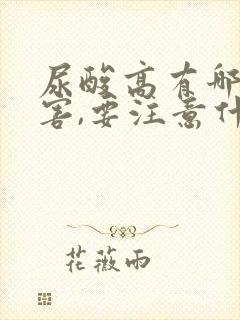 尿酸高有哪
害,要注意什
花薇雨